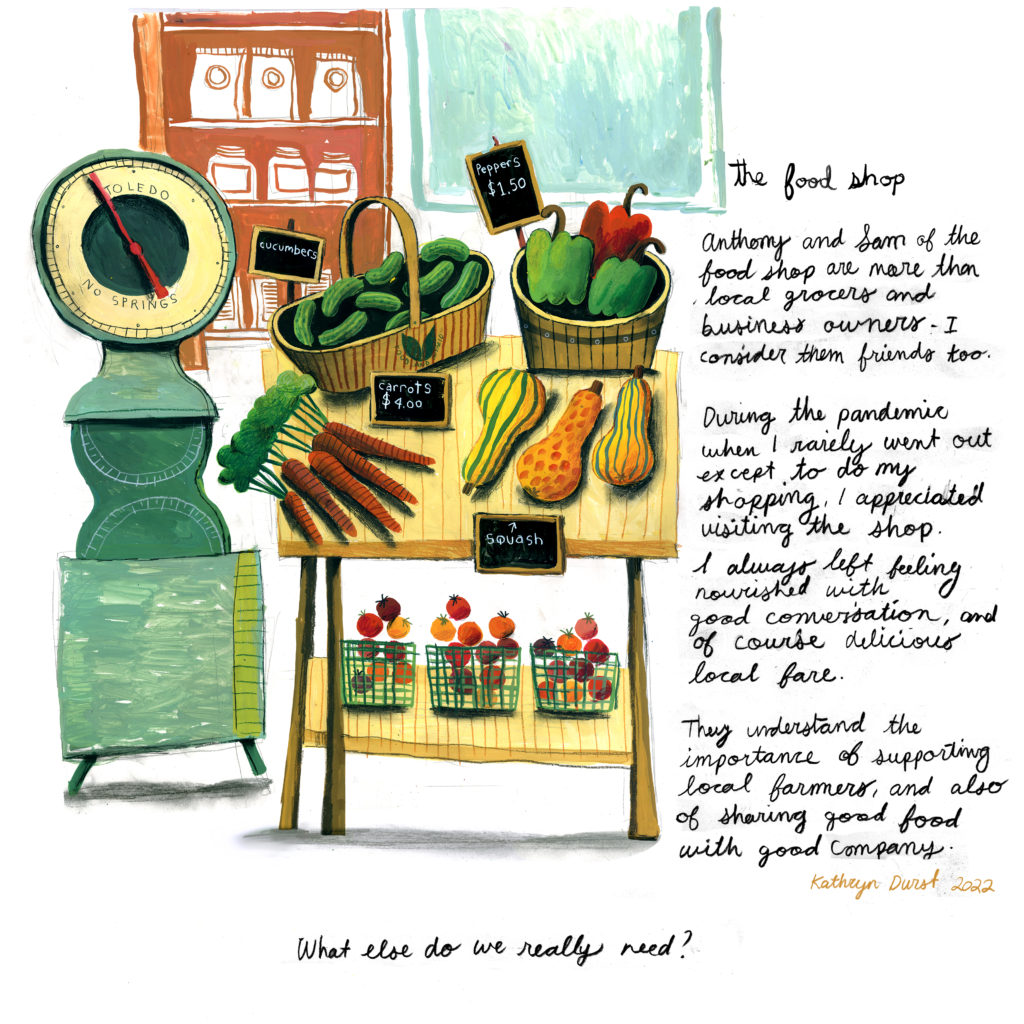 TOLEDO
NO SPRINGS
cucumbers
Peppers
$1.50
carrots
$4.00
squash
the food shop
Anthony and Sam of the
food shop are more than
local grocers and
business owners - I
consider them friends too.
During the pandemic
when I rarely went out
except to do my
shopping, I appreciated
visiting the shop.
I always left feeling
nourished with
good conversation, and
of course delicious
local fare.
They understand the
importance of supporting
local farmers, and also
of sharing good food
with good company.
Kathryn Durst 2022
What else do we really need?